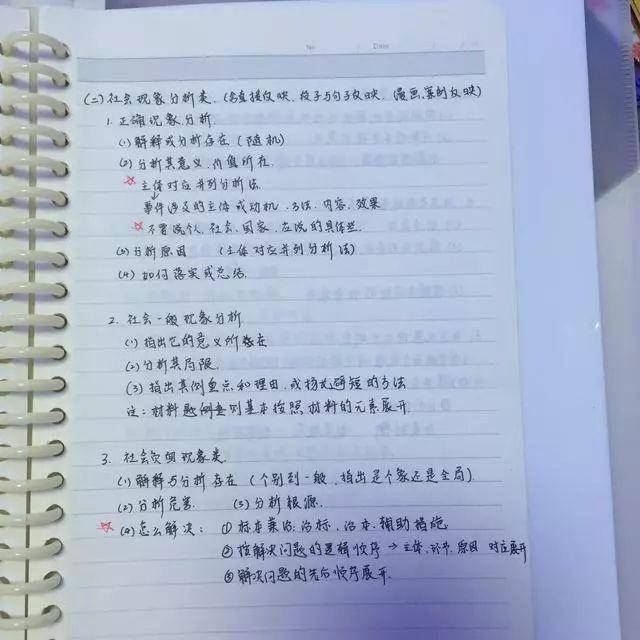 No
Date
(二)社会现象分析类.(含直接反映、段子与句子反映、漫画、案例反映)
1.正确现象分析.
(1)解释或分析存在(随机)
(2)分析其意义、价值所在.
☆主体对应并列分析法
事件涉及的主体或动机、方法、内容、效果
☆不要说个人、社会、国家,应说的具体些.
(3)分析原因 (主体对应并列分析法)
(4)如何落实或总结.
2.社会一般现象分析
(1)指出它的意义所在
(2)分析其局限.
(3)指出和理由,或扬长避短的方法
注:材料题例基本按照材料的元素展开.
3.社会负面现象类.
(1)解释与分析存在(个别到一般,指出是个案还是全局)
(2)分析危害. (3)分析根源.
☆(4)怎么解决:①标本兼治,治标、治本、辅助措施
②按解决问题的逻辑顺序→主体、环节、原因 对应展开
③解决问题的先后顺序展开.